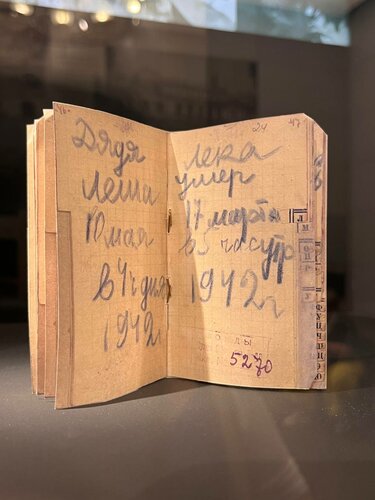 Дядя
Леша
10 мая
в 4 ч дня
1942 г
24
47
лека
умер
17 марта
в 5 час утр
1942 г
5270